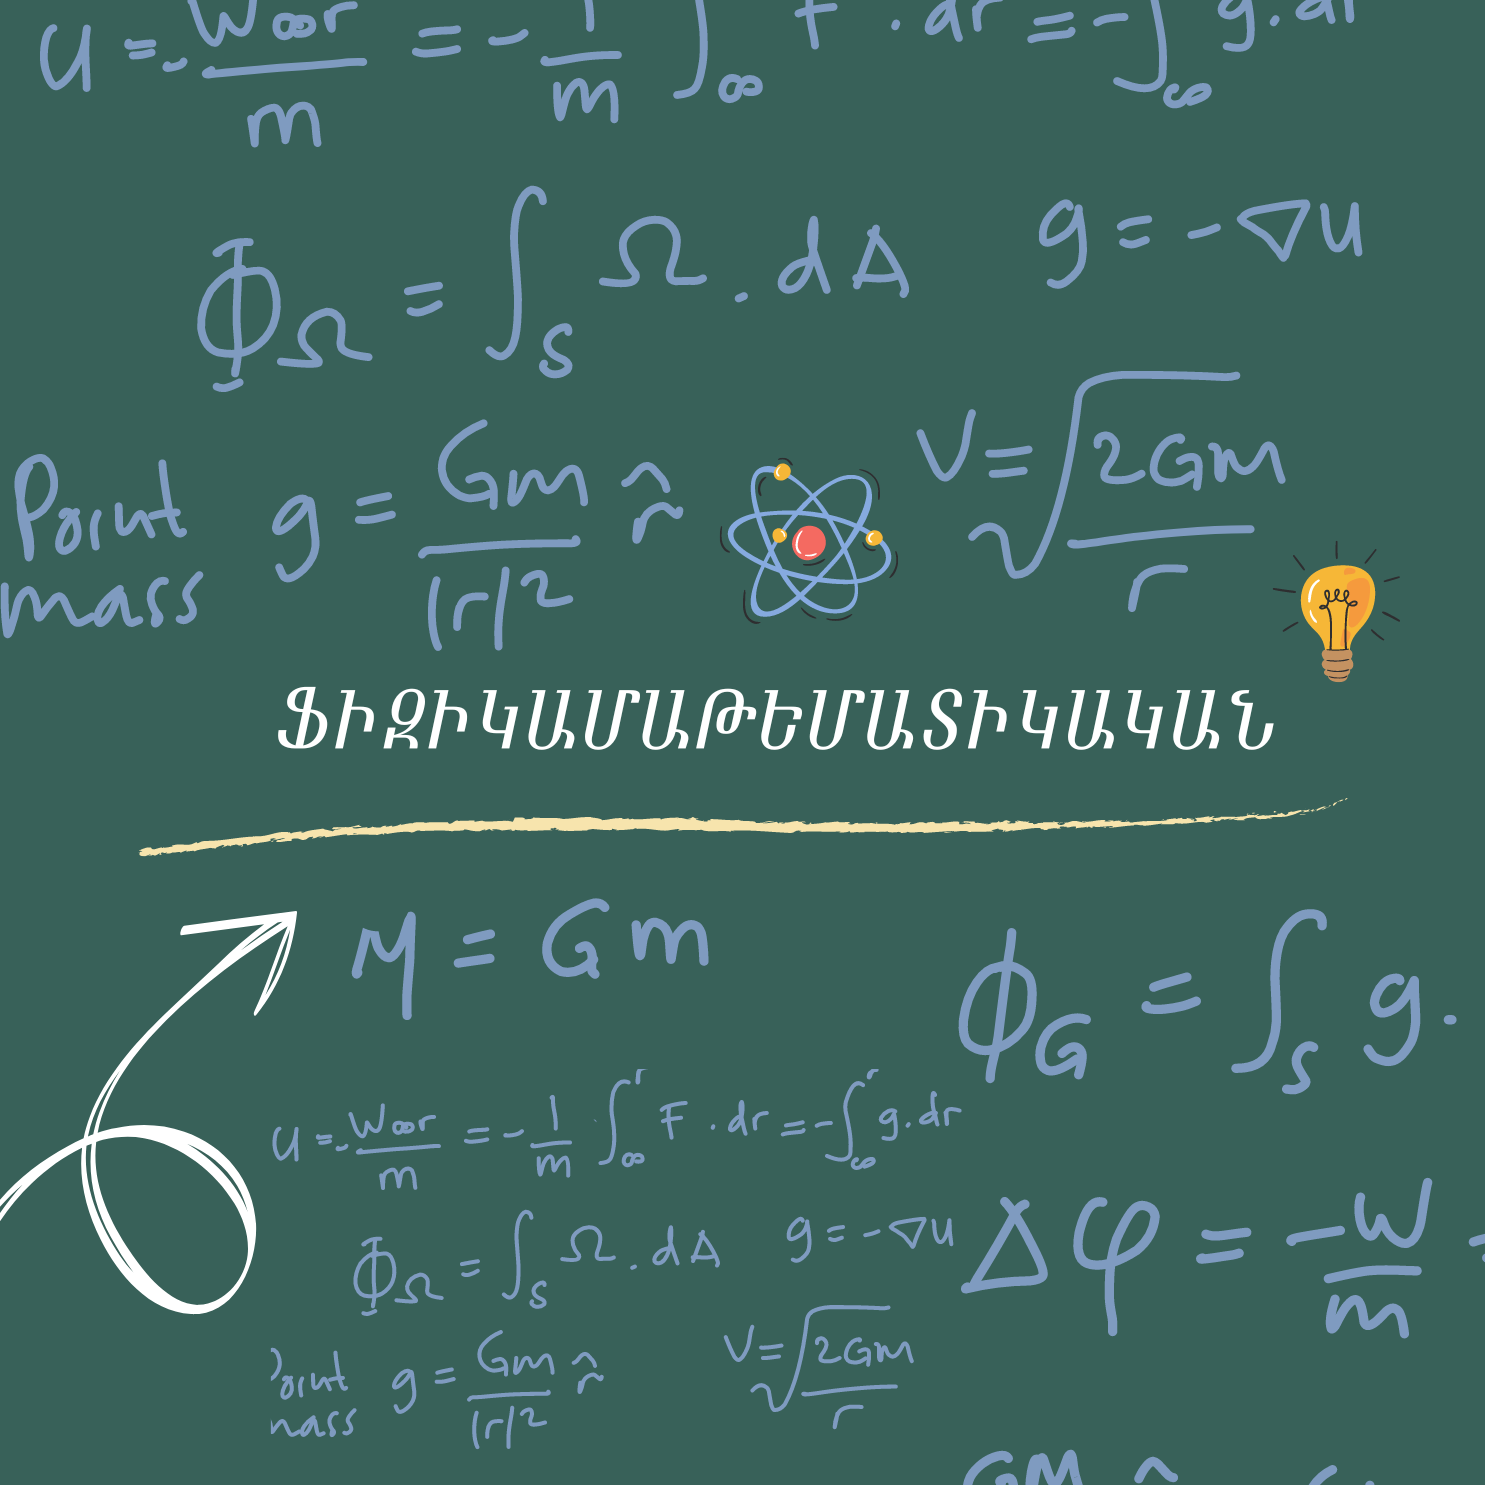 U = - W∞r / m = - 1/m ∫∞ F . dr = - ∫∞ g . dr
Φ_Ω = ∫_S Ω . dA
g = - ∇U
Point mass g = Gm / |r|² r̂
V = √ 2Gm / r
ՖԻԶԻԿԱՄԱԹԵՄԱՏԻԿԱԿԱՆ
μ = Gm
ϕ_G = ∫_S g .
U = - W∞r / m = - 1/m ∫∞ F . dr = - ∫∞ g . dr
Φ_Ω = ∫_S Ω . dA
g = - ∇U
Δφ = - W / m
g = Gm / |r|² r̂
V = √ 2Gm / r